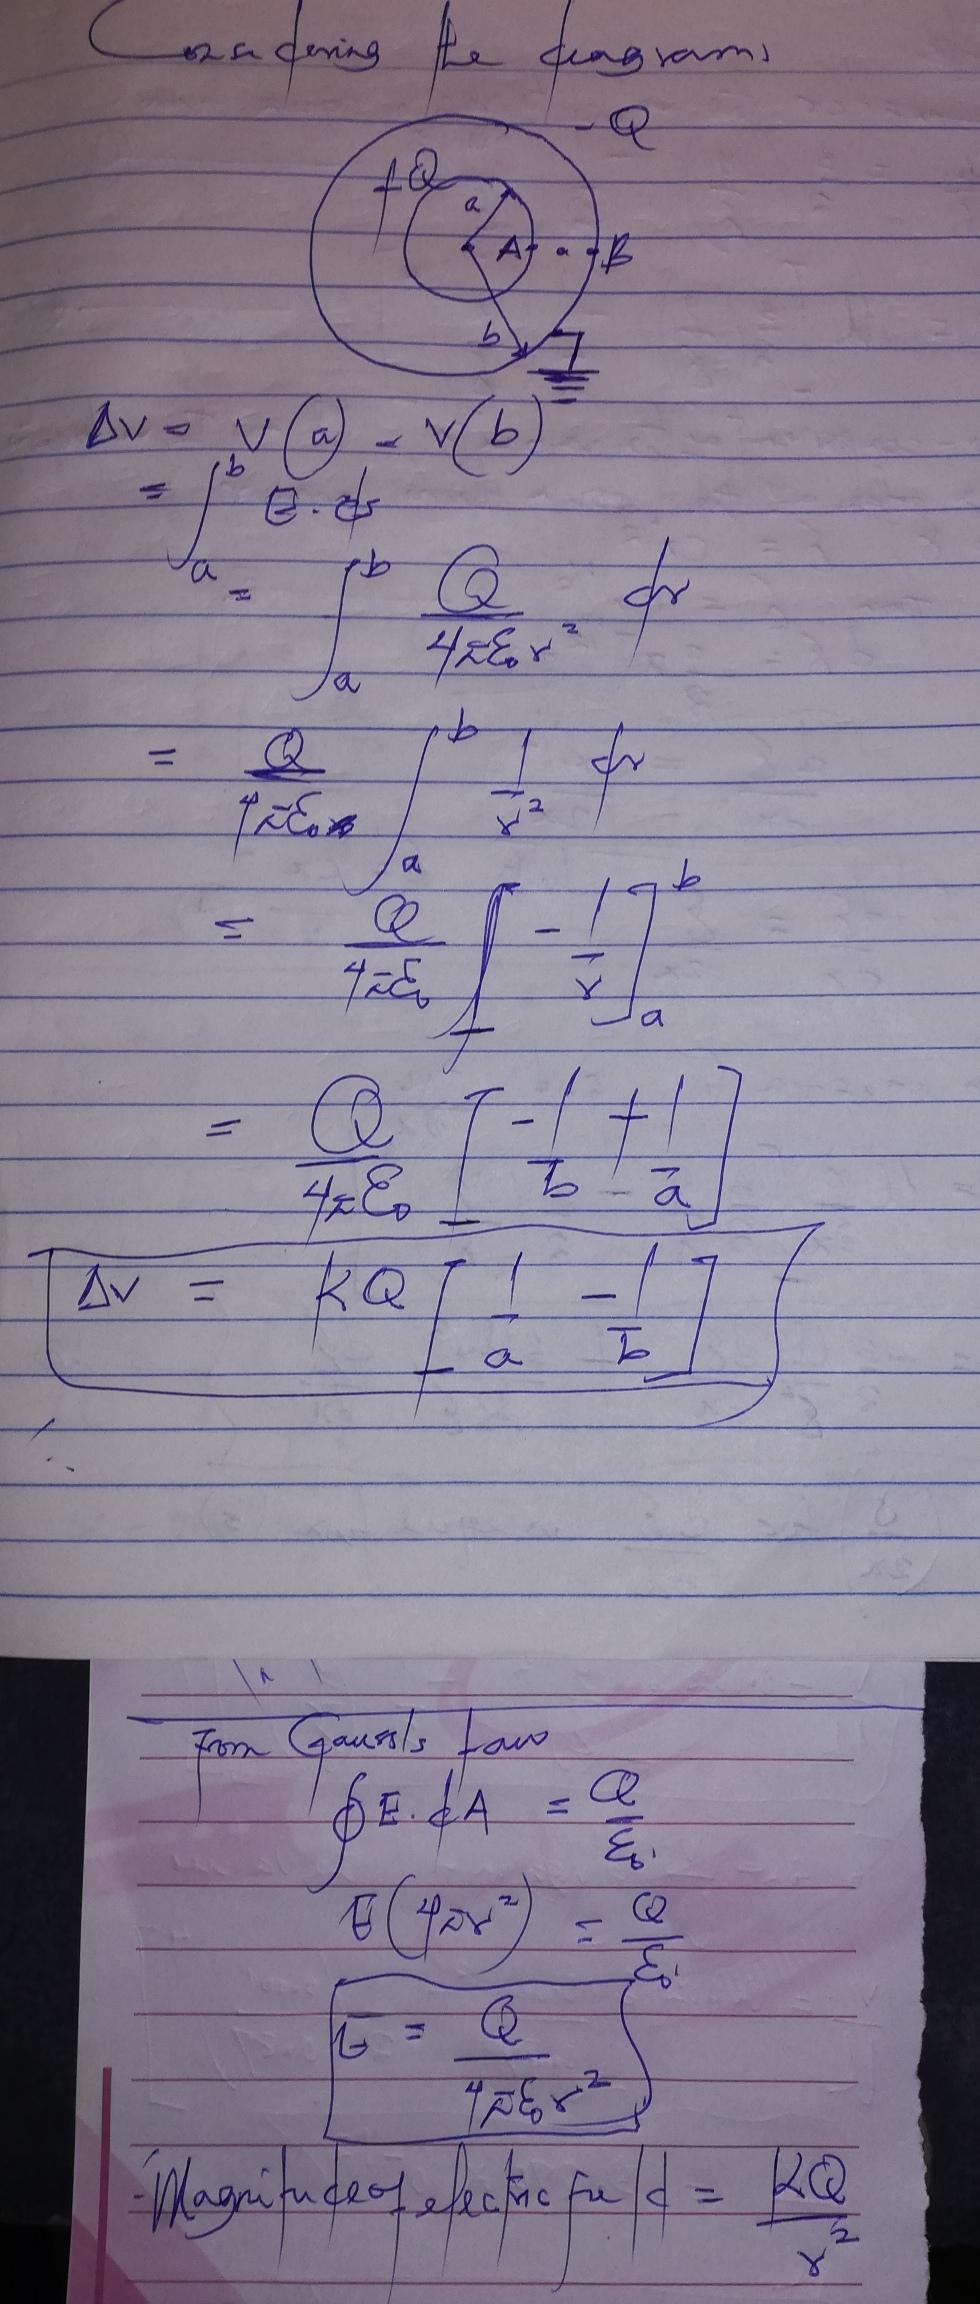 Considering the diagram,
- Q
+Q
a
A
B
b
ΔV = V(a) - V(b)
= ∫_a^b E.ds
= ∫_a^b Q/4πε₀r² dr
= Q/4πε₀ ∫_a^b 1/r² dr
= Q/4πε₀ [-1/r]_a^b
= Q/4πε₀ [-1/b + 1/a]
ΔV = KQ [1/a - 1/b]
From Gauss's Law
∮E.dA = Q/ε₀
E(4πr²) = Q/ε₀
E = Q/4πε₀r²
Magnitude of electric field = KQ/r²